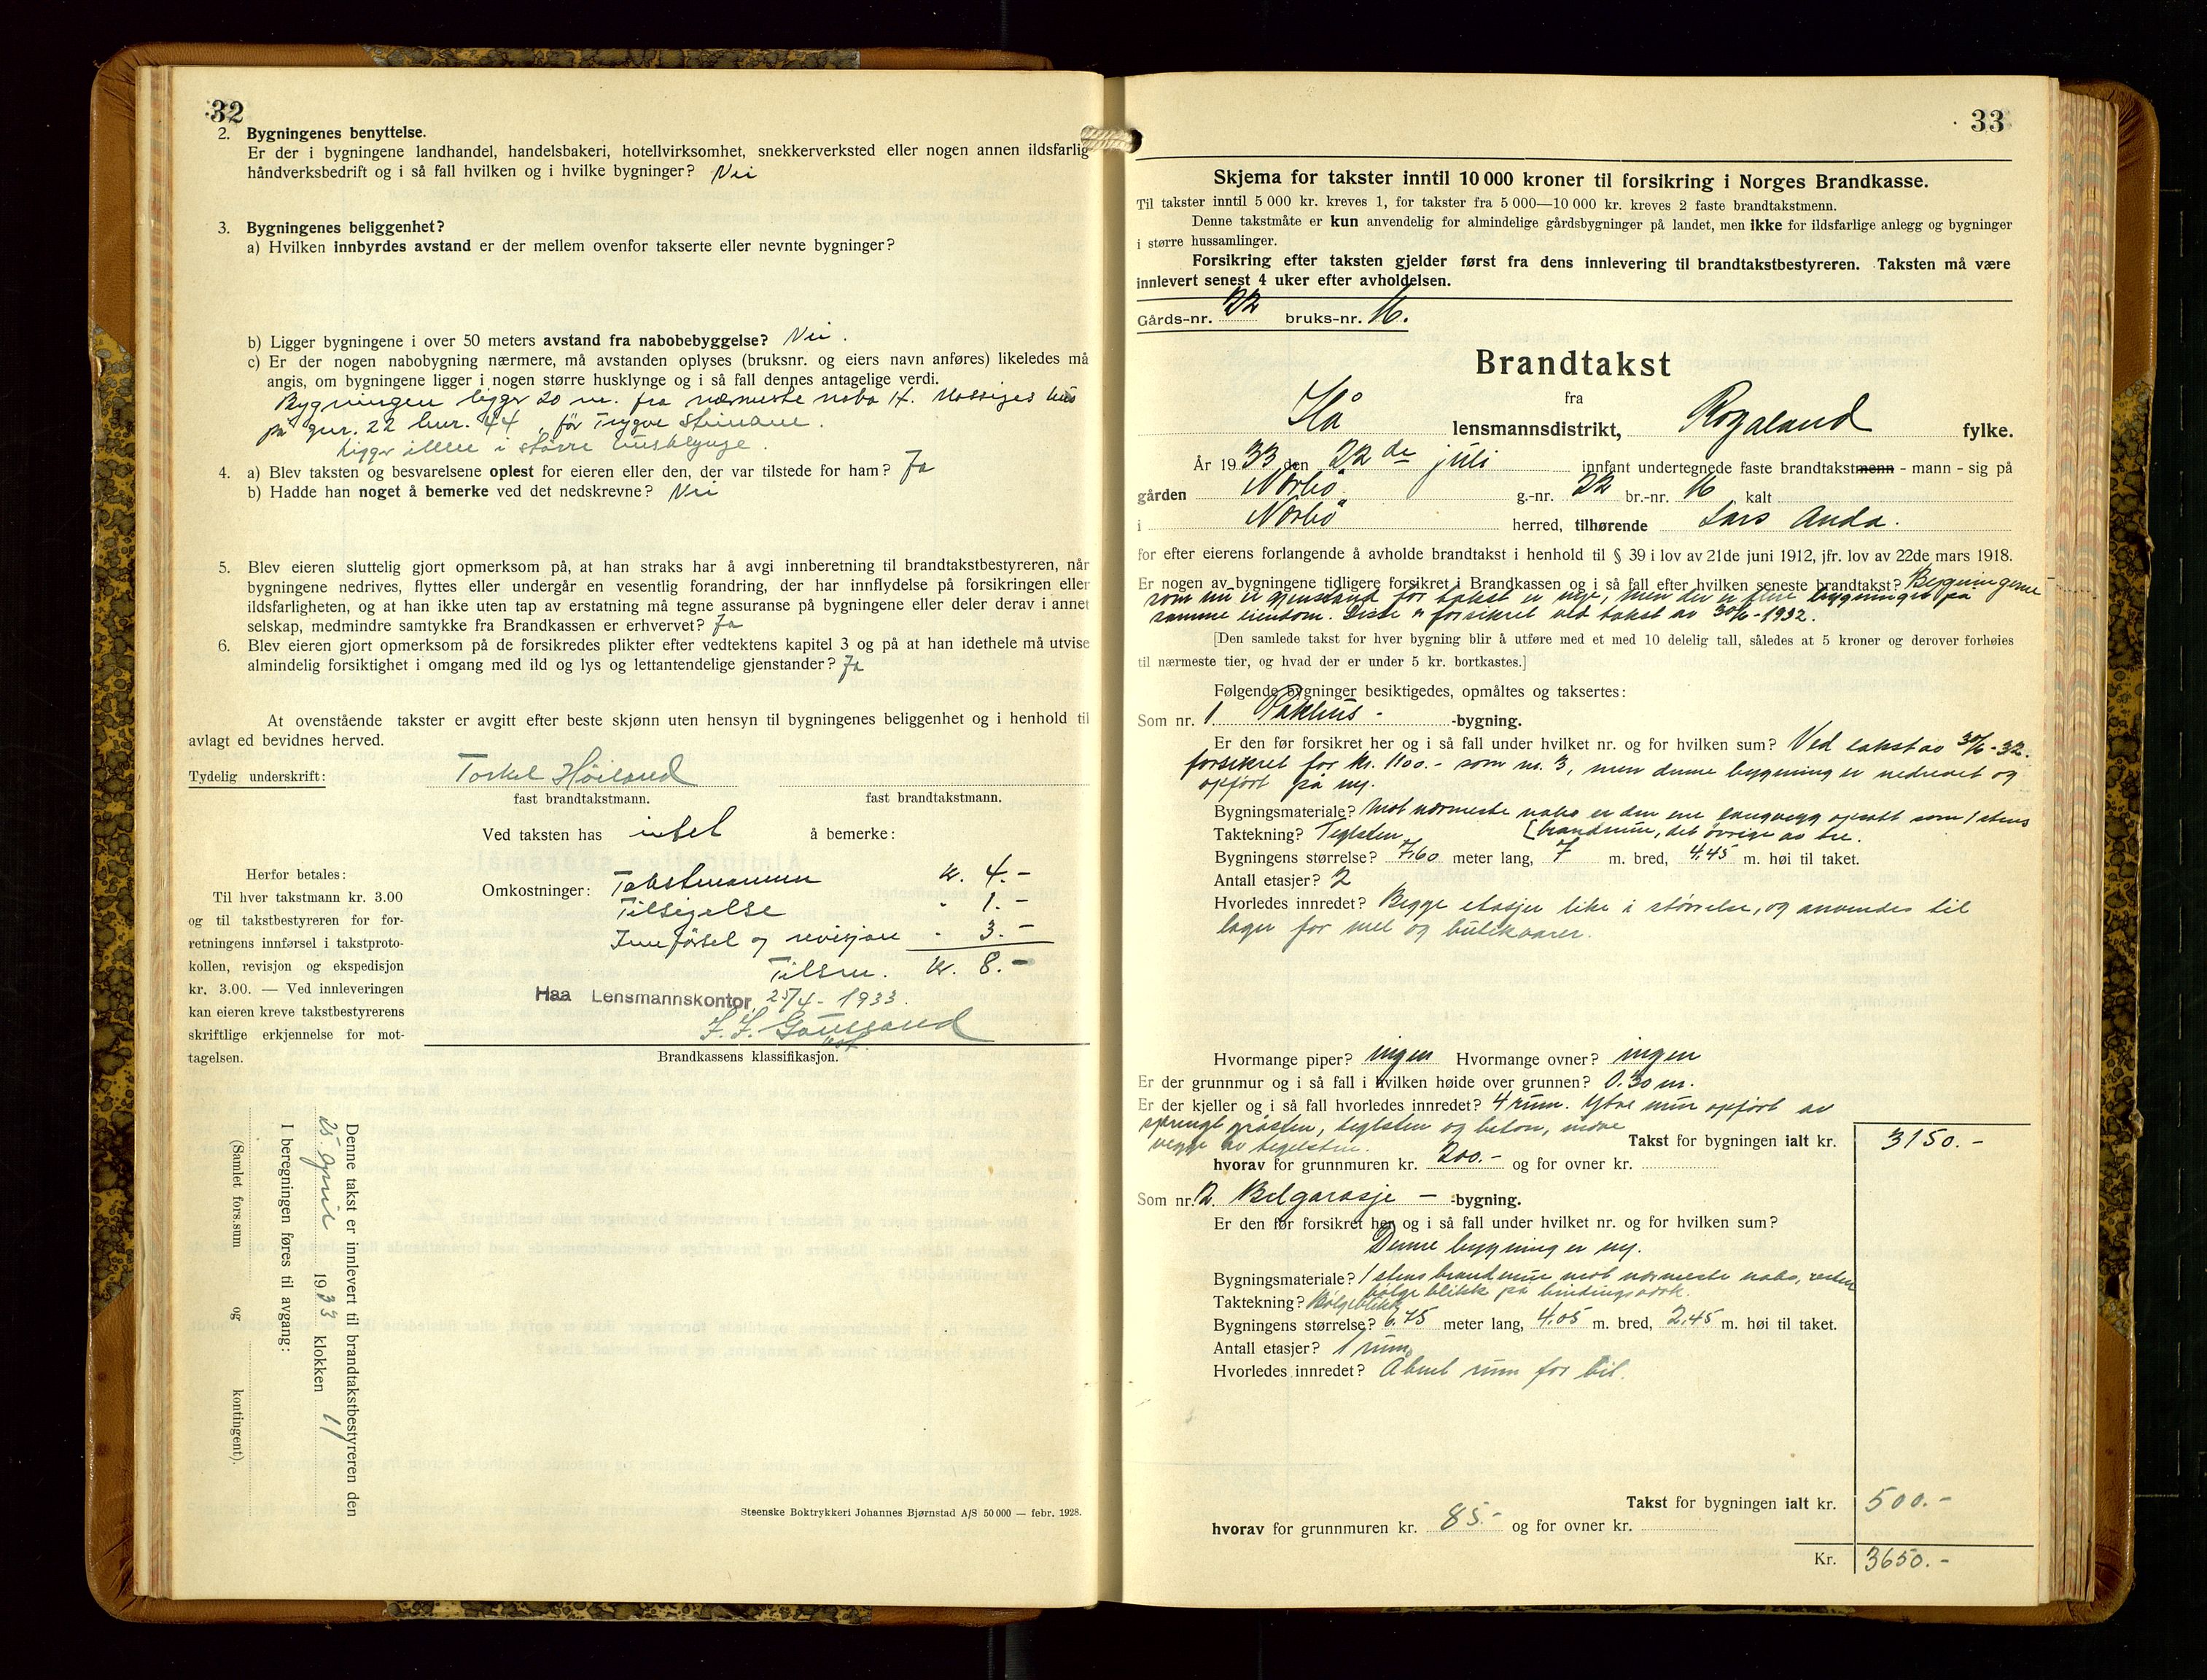 32
2. Bygningenes benyttelse.
Er der i bygningene landhandel, handelsbakeri, hotellvirksomhet, snekkerverksted eller nogen annen ildsfarlig
håndverksbedrift og i så fall hvilken og i hvilke bygninger? Nei
3. Bygningenes beliggenhet?
a) Hvilken innbyrdes avstand er der mellem ovenfor takserte eller nevnte bygninger?
b) Ligger bygningene i over 50 meters avstand fra nabobebyggelse? Nei.
c) Er der nogen nabobygning nærmere, må avstanden oplyses (bruksnr. og eiers navn anføres) likeledes må
angis, om bygningene ligger i nogen større husklynge og i så fall dennes antagelige verdi.
Bygningen ligger 20 m. fra nærmeste nabo H. hus
på gnr. 22 bnr. 44, før Trygve Steinane.
Ligger ikke i større husklynge.
4. a) Blev taksten og besvarelsene oplest for eieren eller den, der var tilstede for ham? Ja
b) Hadde han noget å bemerke ved det nedskrevne? Nei
5. Blev eieren sluttelig gjort opmerksom på, at han straks har å avgi innberetning til brandtakstbestyreren, når
bygningene nedrives, flyttes eller undergår en vesentlig forandring, der har innflydelse på forsikringen eller
ildsfarligheten, og at han ikke uten tap av erstatning må tegne assuranse på bygningene eller deler derav i annet
selskap, medmindre samtykke fra Brandkassen er erhvervet? Ja
6. Blev eieren gjort opmerksom på de forsikredes plikter efter vedtektens kapitel 3 og på at han idethele må utvise
almindelig forsiktighet i omgang med ild og lys og lettantendelige gjenstander? Ja
At ovenstående takster er avgitt efter beste skjønn uten hensyn til bygningenes beliggenhet og i henhold til
avlagt ed bevidnes herved.
Tydelig underskrift: Torkel Høiland
fast brandtakstmann. fast brandtakstmann.
Ved taksten has intet å bemerke:
Herfor betales:
Til hver takstmann kr. 3.00
og til takstbestyreren for for-
retningens innførsel i takstproto-
kollen, revisjon og ekspedisjon
kr. 3.00. — Ved innleveringen
kan eieren kreve takstbestyrerens
skriftlige erkjennelse for mot-
tagelsen.
Omkostninger: Takstmannen kr. 4.-
Tilsigelse " 1.-
Innførsel og revisjon " 3.-
Tilsm. kr. 8.-
Haa Lensmannskontor, 25/4 - 1933.
Brandkassens klassifikasjon.
Denne takst er innlevert til brandtakstbestyreren den
25. april 1933 klokken 11
I beregningen føres til avgang:
(Samlet fors.sum og kontingent).
Steenske Boktrykkeri Johannes Bjørnstad A/S 50 000 — febr. 1928.
33
Skjema for takster inntil 10 000 kroner til forsikring i Norges Brandkasse.
Til takster inntil 5 000 kr. kreves 1, for takster fra 5 000—10 000 kr. kreves 2 faste brandtakstmenn.
Denne takstmåte er kun anvendelig for almindelige gårdsbygninger på landet, men ikke for ildsfarlige anlegg og bygninger
i større hussamlinger.
Forsikring efter taksten gjelder først fra dens innlevering til brandtakstbestyreren. Taksten må være
innlevert senest 4 uker efter avholdelsen.
Gårds-nr. 22 bruks-nr. 16.
Brandtakst
fra
Hå lensmannsdistrikt, Rogaland fylke.
År 1933 den 22de juli innfant undertegnede faste brandtakstmenn - mann - sig på
gården Nærbø g.-nr. 22 br.-nr. 16 kalt
i Nærbø herred, tilhørende Lars Anda.
for efter eierens forlangende å avholde brandtakst i henhold til § 39 i lov av 21de juni 1912, jfr. lov av 22de mars 1918.
Er nogen av bygningene tidligere forsikret i Brandkassen og i så fall efter hvilken seneste brandtakst? Bygningene
som nu er gjenstand for takst er nye, men der er flere bygninger på
samme eiendom. Disse er forsikret ved takst av 30/6-1932.
[Den samlede takst for hver bygning blir å utføre med et med 10 delelig tall, således at 5 kroner og derover forhøies
til nærmeste tier, og hvad der er under 5 kr. bortkastes.]
Følgende bygninger besiktigedes, opmåltes og taksertes:
Som nr. 1 Pakhus - -bygning.
Er den før forsikret her og i så fall under hvilket nr. og for hvilken sum? Ved takst av 30/6-32.
forsikret for kr. 1100.- som nr. 3, men denne bygning er nedrevet og
opført på ny.
Bygningsmateriale? Mot nærmeste nabo er den ene langvegg opsatt som 1 stens
Taktekning? Teglsten [brandmur, det øvrige av tre.
Bygningens størrelse? 7,60 meter lang, 7 m. bred, 4,45 m. høi til taket.
Antall etasjer? 2
Hvorledes innredet? Begge etasjer like i størrelse, og anvendes til
lager for mel og butikvarer.
Hvormange piper? ingen Hvormange ovner? ingen
Er der grunnmur og i så fall i hvilken høide over grunnen? 0.30 m.
Er der kjeller og i så fall hvorledes innredet? 4 rum. Ytre mur opført av
sprengt gråsten, teglsten og beton, indre
vegge av teglsten. Takst for bygningen ialt kr. 3150.-
hvorav for grunnmuren kr. 200.- og for ovner kr.
Som nr. 2. Bilgarasje - -bygning.
Er den før forsikret her og i så fall under hvilket nr. og for hvilken sum?
Denne bygning er ny.
Bygningsmateriale? 1 stens brandmur mot nærmeste nabo, resten
bølgeblikk på bindingsverk.
Taktekning? Bølgeblikk
Bygningens størrelse? 6,75 meter lang, 4,05 m. bred, 2,45 m. høi til taket.
Antall etasjer? 1 rum
Hvorledes innredet? Åbent rum for bil.
Takst for bygningen ialt kr. 500.-
hvorav for grunnmuren kr. 85.- og for ovner kr.
Kr. 3650.-